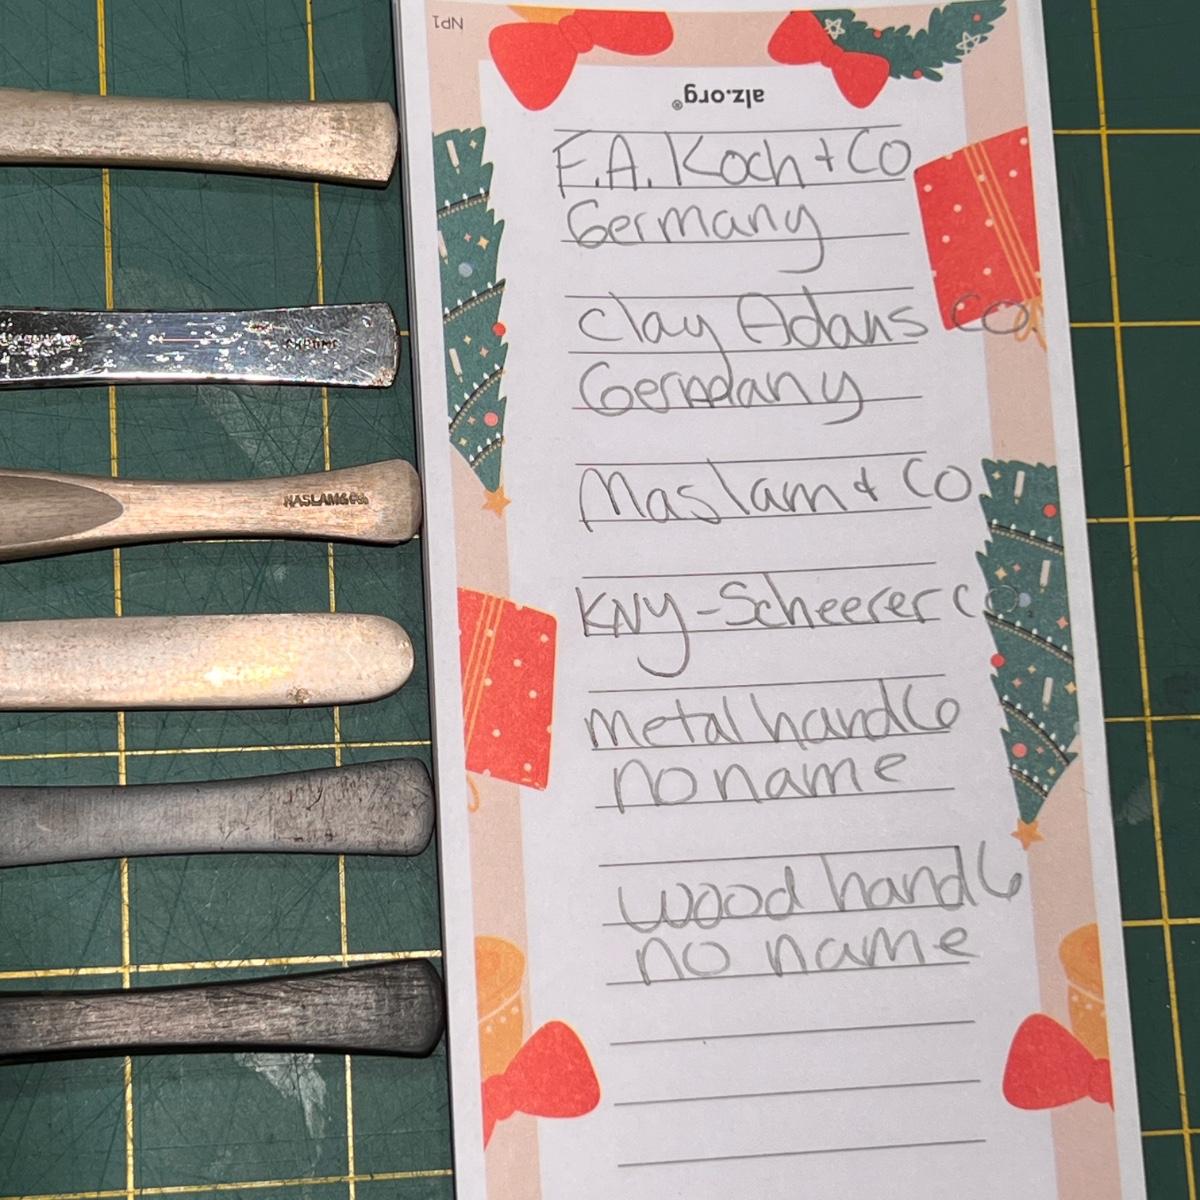 NP1
alz.org®
F.A. Koch + Co
Germany
Clay Adams Co
Germany
Maslam + Co
KNY-Scheerer Co
metal handle
no name
wood handle
no name
CHROME
HASLAM & Co.